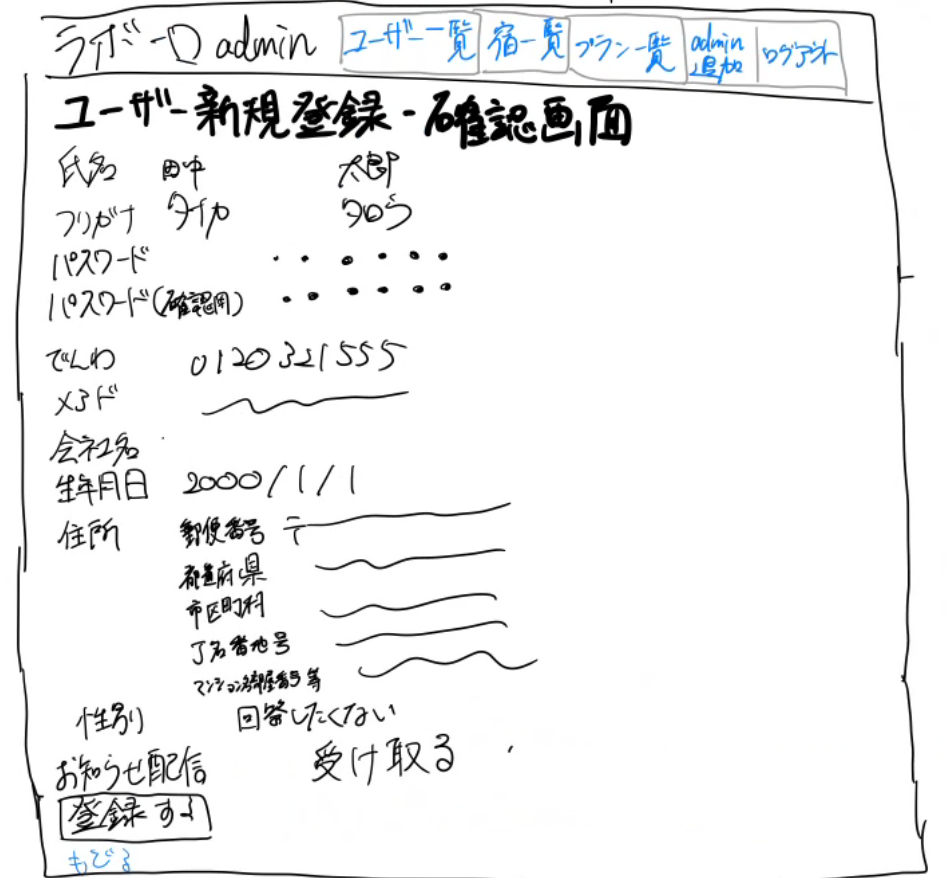 admin ユーザー一覧 宿一覧 プラン一覧 admin追加 ログアウト
ユーザー新規登録 - 確認画面
氏名 田中 太郎
フリガナ タナカ タロウ
パスワード ・・・・・・
パスワード(確認用) ・・・・・・
でんわ 0120321555
メアド
会社名
生年月日 2000/1/1
住所 郵便番号 〒
都道府県
市区町村
丁名番地号
マンション名部屋番号等
性別 回答したくない
お知らせ配信 受け取る
登録する
もどる